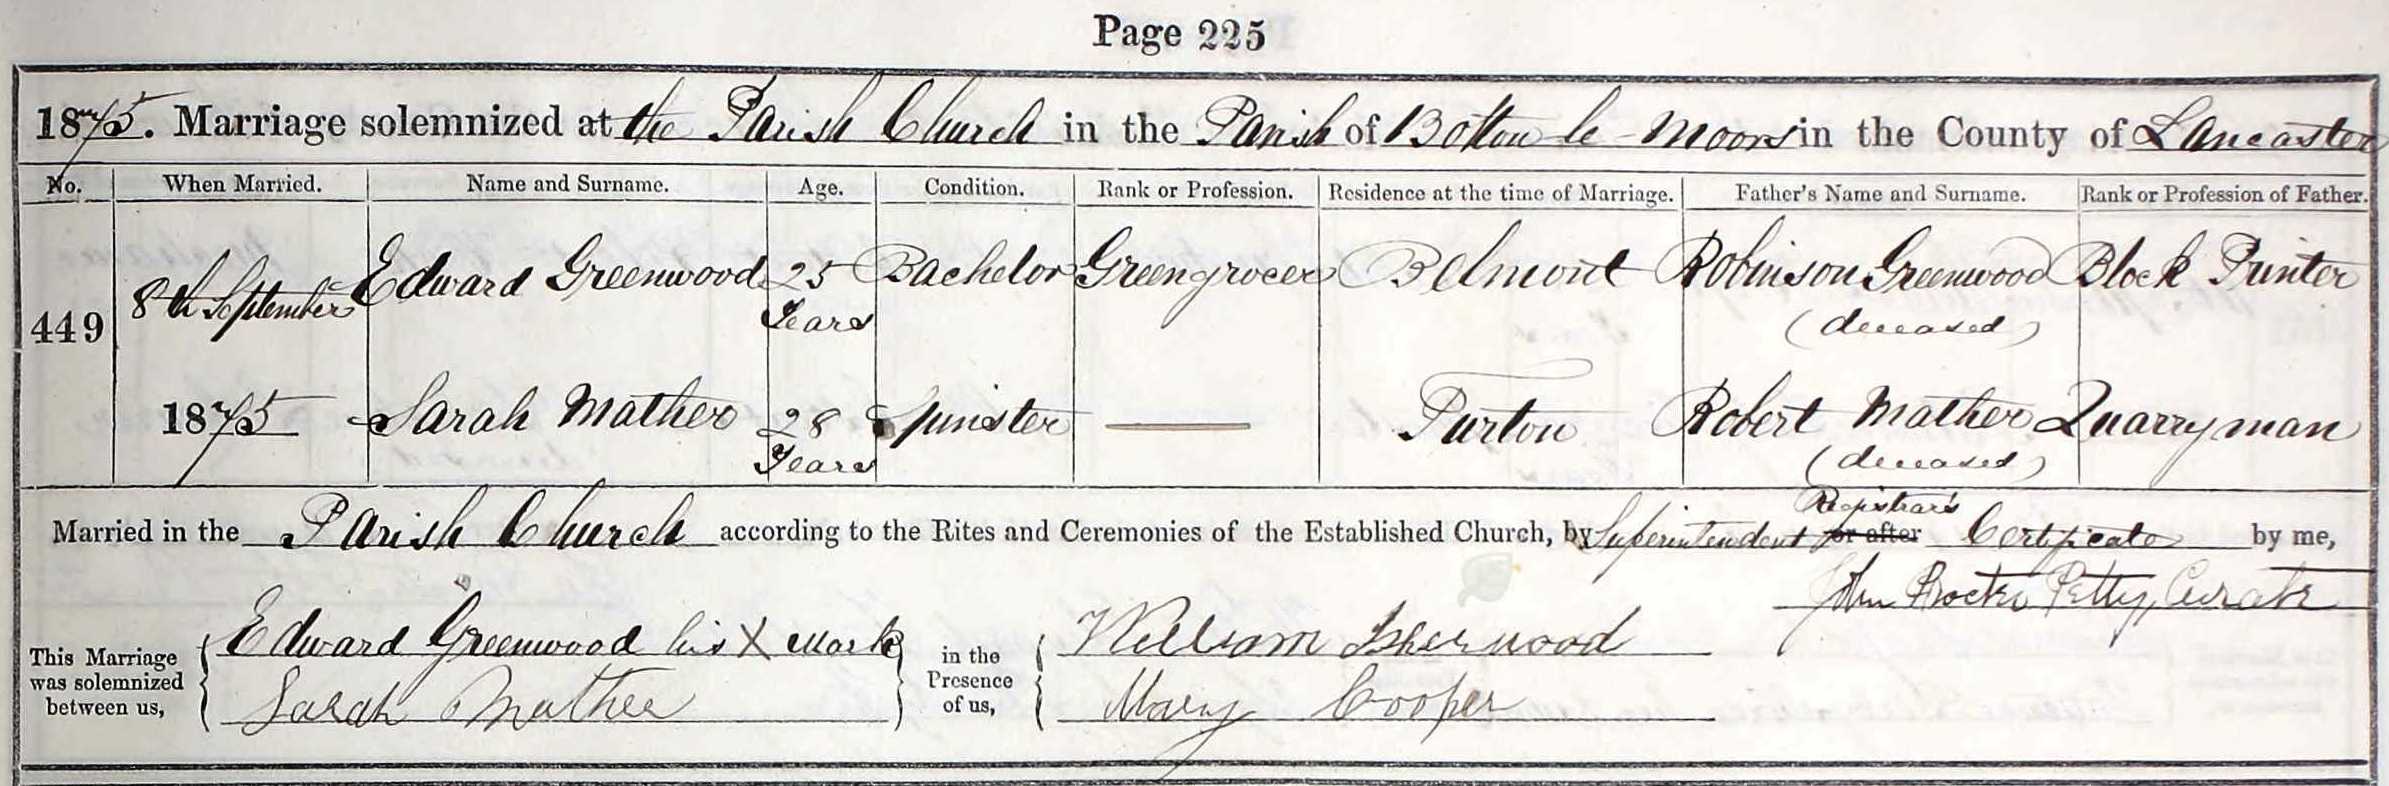 Page 225
1875. Marriage solemnized at the Parish Church in the Parish of Bolton le Moors in the County of Lancaster
No. When Married. Name and Surname. Age. Condition. Rank or Profession. Residence at the time of Marriage. Father's Name and Surname. Rank or Profession of Father.
449 8th September Edward Greenwood 25 Years Bachelor Greengrocer Belmont Robinson Greenwood (deceased) Block Printer
1875 Sarah Mather 28 Years Spinster Turton Robert Mather (deceased) Quarryman
Registrar's
Married in the Parish Church according to the Rites and Ceremonies of the Established Church, by Superintendent or after Certificate by me,
John Procter Petty, Curate
This Marriage was solemnized between us, Edward Greenwood his X Mark in the Presence of us, William Isherwood
Sarah Mather Mary Cooper